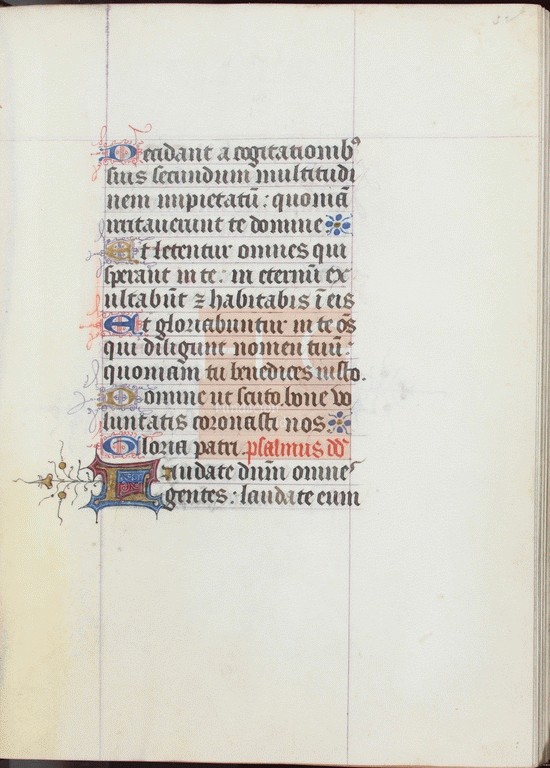 Decidant a cogitationibꝰ
suis secundum multitudi
nem impietatū : quoniā
irritauerunt te domine
Et letentur omnes qui
sperant in te : in eternū ex
ultabūt ⁊ habitabis ī eis
Et gloriabuntur in te oēs
qui diligunt nomen tuū :
quoniam tu benedices iusto.
Domine ut scuto bone vo
luntatis coronasti nos
Gloria patri. psalmus dd
Laudate dnm omnes
gentes : laudate eum